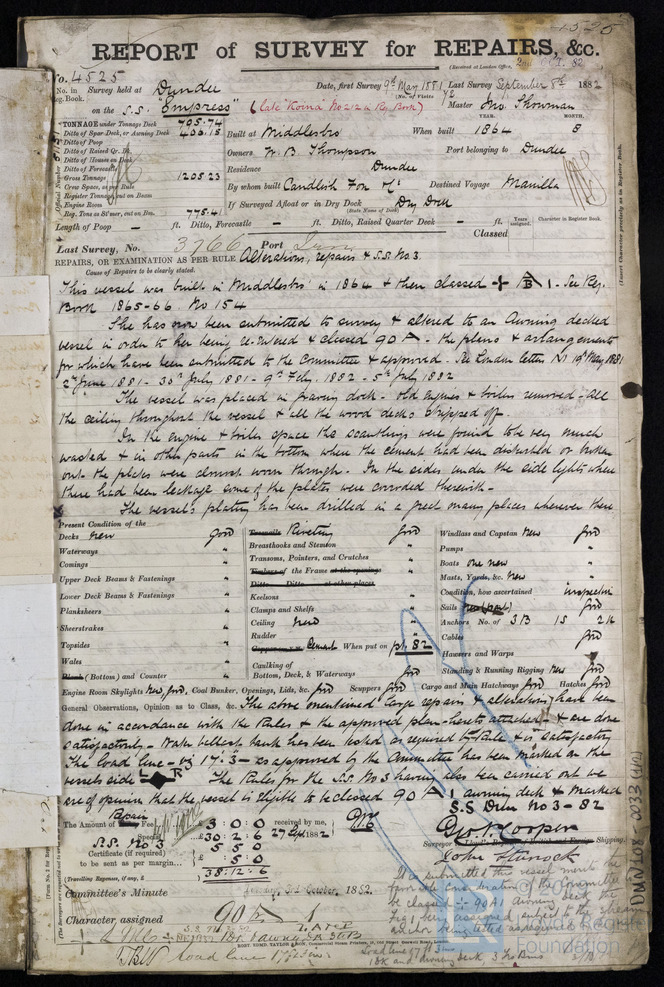 4525
REPORT of SURVEY for REPAIRS, &c.
(Received at London Office, 2nd Oct. 82
No. 4525
No. in Survey held at Dundee Date, first Survey 9th May 1881 Last Survey September 8th 1882
Reg. Book. (No. of Visits 72
on the S.S. "Empress" (late "Roina" No 212 in R. Book) Master Jno. Showman
TONNAGE under Tonnage Deck 705.74
Ditto of Spar Deck, or Awning Deck 406.18
Ditto of Poop
Ditto of Raised Qr. Dk.
Ditto of Houses on Deck
Ditto of Forecastle
Gross Tonnage 1205.23
Crew Space, as per Rule
Register Tonnage cut on Beam
Engine Room
Reg. Tons as St'mer, cut on Bea. 775.41
Built at Middlesbro When built YEAR. 1864 MONTH. 8
Owners W. B. Thompson Port belonging to Dundee
Residence Dundee
By whom built Candlish Fox & Co Destined Voyage Manilla
If Surveyed Afloat or in Dry Dock Dry Dock
(State Name of Dock)
Length of Poop – ft. Ditto, Forecastle – ft. Ditto, Raised Quarter Deck – ft.
Years assigned. Character in Register Book.
Classed
Last Survey, No. 3766 Port
REPAIRS, OR EXAMINATION AS PER RULE Alterations, repairs & S.S. No. 3
Cause of Repairs to be clearly stated.
This vessel was built in Middlesbro' in 1864 & then classed B 1 - See Reg.
Book 1865-66. No 154
She has now been submitted to survey & altered to an Awning decked
vessel in order to her being re-entered & classed 90 A - the plans & arrangements
for which have been submitted to the Committee & approved. See London letter 19th May 1881
2nd June 1881 - 30th July 1881 - 9th Feby. 1882 - 5th July 1882
The vessel was placed in graving dock - old engines & boilers removed - all
the ceiling throughout the vessel & all the wood decks stripped off.
In the engine & boiler space the scantlings were found to be very much
wasted & in other parts in the bottom where the cement had been disturbed or broken
out the plates were almost worn through. In the sides under the side lights where
there had been leakage some of the plates were corroded therewith -
The vessel's plating has been drilled in a great many places wherever there
Present Condition of the
Decks new Good
Waterways "
Comings "
Upper Deck Beams & Fastenings "
Lower Deck Beams & Fastenings "
Planksheers "
Sheerstrakes "
Topsides "
Wales "
(Bottom) and Counter "
Treenails Riveting good
Breasthooks and Stemson "
Transoms, Pointers, and Crutches "
Timbers of the Frame at the openings "
Ditto Ditto at other places
Keelsons "
Clamps and Shelfs "
Ceiling New "
Rudder "
Cement When put on pt. 82
Caulking of
Bottom, Deck, & Waterways good
Windlass and Capstan New good
Pumps "
Boats one new "
Masts, Yards, &c. New "
Condition, how ascertained inspection
Sails new (part) good
Anchors No. of 3 B 1 S 2 K
Cables good
Hawsers and Warps "
Standing & Running Rigging New good
Engine Room Skylights New, good, Coal Bunker, Openings, Lids, &c. good Scuppers good Cargo and Main Hatchways good Hatches good
General Observations, Opinion as to Class, &c. The above mentioned large repairs & alterations have been
done in accordance with the Rules & the approved plan hereto attached - & are done
satisfactorily - Water ballast tank has been tested as required by Rule & is satisfactory
The load line - viz 17.3 - as approved by the Committee has been marked on the
vessels side L R The Rules for the S.S. No 3 having also been carried out we
are of opinion that the vessel is eligible to be classed 90 A 1 awning deck & marked
S.S. Dun No 3 - 82
The Amount of Repair Fee 3 : 0 : 0 received by me,
Special 30 : 2 : 6 27 Sept 1882
S.S. No. 3 5 : 5 : 0
Certificate (if required) : 5 : 0
to be sent as per margin
38 : 12 : 6
(Travelling Expenses, if any, £
Geo. P. Cooper
Surveyor to Lloyd's Register of British and Foreign Shipping.
John Sturrock
Committee's Minute Tuesday, 3rd October, 1882.
Character assigned 90 A 1
Load line 17 ft 3 ins
It is submitted this vessel merits the
favorable consideration of the Committee
be classed 90 A 1 awning deck the
being assigned, subject to the stream
anchor being tested as required
Load line 17 ft 3 ins
1 DK and awning deck
RONT. KOMD, TAYLOR
(Insert Character precisely as in Register Book.
DUN108-0033 (1/2)
© Lloyd's Register
Foundation